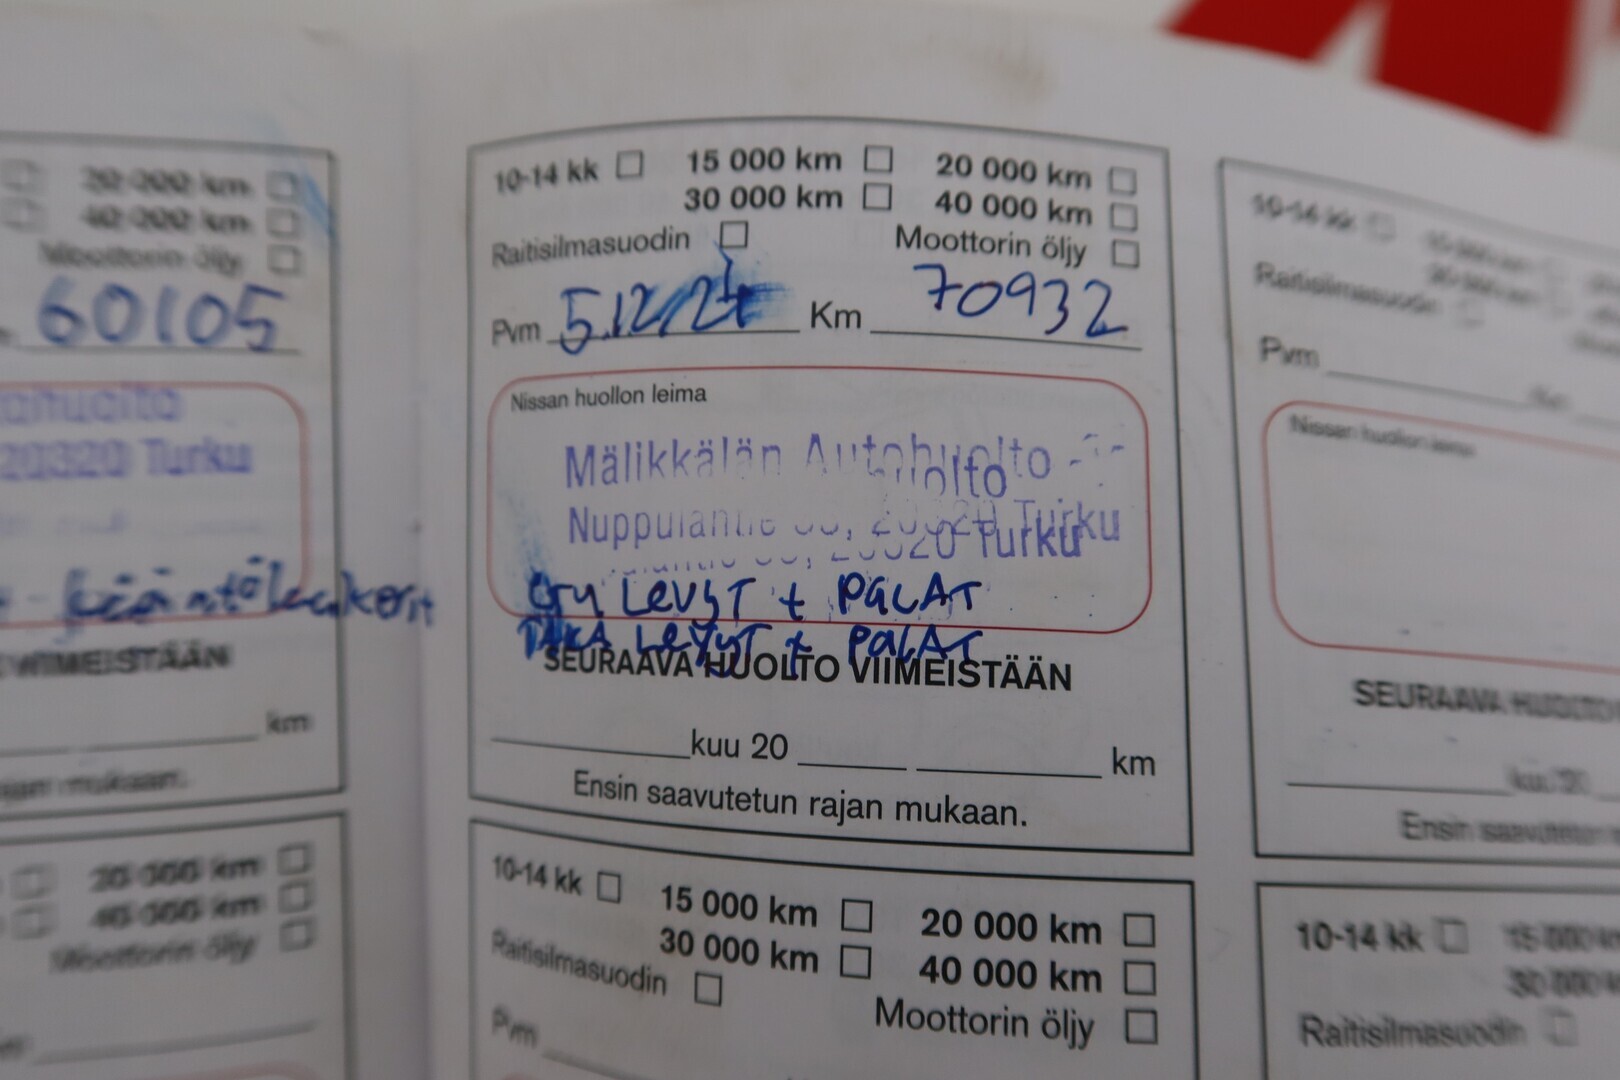 20 000 km
40 000 km
Moottorin öljy
60105
20320 Turku
VIIMEISTÄÄN
km
rajan mukaan.
20 000 km
40 000 km
Moottorin öljy
10-14 kk 15 000 km 20 000 km
30 000 km 40 000 km
Raitisilmasuodin Moottorin öljy
Pvm 5.12/21 Km 70932
Nissan huollon leima
Mälikkälän Autohuolto
20320 Turku
20320 Turku
ETU LEVYT + PALAT
TAKA LEVYT + PALAT
SEURAAVA HUOLTO VIIMEISTÄÄN
kuu 20 km
Ensin saavutetun rajan mukaan.
10-14 kk 15 000 km 20 000 km
30 000 km 40 000 km
Raitisilmasuodin Moottorin öljy
Pvm
10-14 kk
Raitisilmasuodin
Pvm
Nissan huollon leima
SEURAAVA HUOLTO
kuu 20
Ensin saavutetun
10-14 kk 15 000
30 000
Raitisilmasuodin